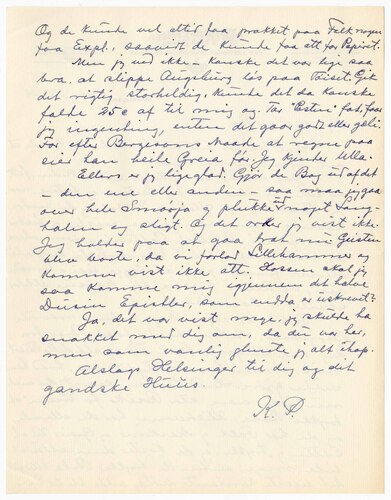 Og de kunde vel altid faa trakket paa Folk nogen
faa Expl., saavidt de kunde faa att for Papiret.
Men jeg ved ikke - kanske det var lige saa
bra, at slippe Augsburg løs paa Riset. Gik
det rigtig storheldig, kunde det da kanske
falde 25 c af til mig og. Tar "Esten" fat, faar
jeg ingenting, enten det gaar godt eller geli.
For efter Bergesons Maade at regne paa
sier han heile Greia før Jeg kjinter Ulla.
Ellers er jeg ligeglad. Gjør de Bog ud af det
- den ene eller anden - saa maa jeg gaa
over hele Smørja og plukke ud noget Lang-
halm og sligt. Og det orker jeg vist ikke.
Jeg holder paa at gaa trat mens Gnisten
blev borte, da vi forlod Lillehammer og
kommer vist ikke att. Hossen skal jeg
saa komme mig igjennem det halve
Dusin Epistler, som endda er uskrevet?
Ja, det var vist mye, jeg skulde ha
snakket med dig om, da du var her,
men som vanlig glemte jeg alt ihop.
Alslags Helsinger til dig og dit
gandske Huus.
K. P.